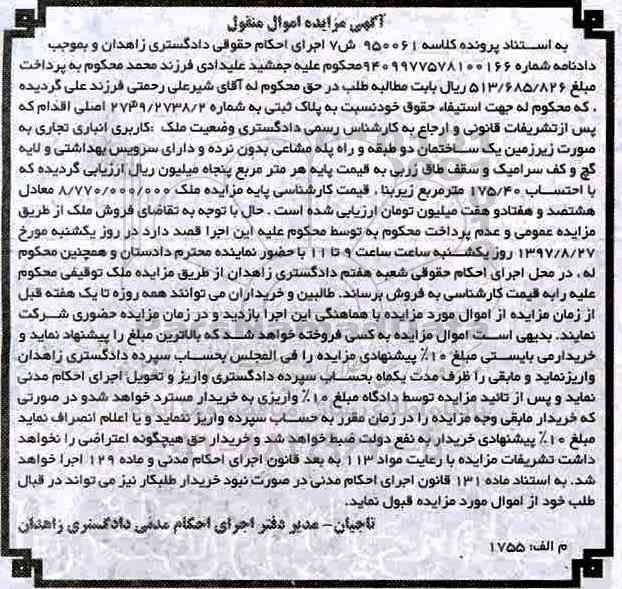 آگهی مزایده اموال منقول
به استناد پرونده کلاسه ۹۵۰۰۶۱ ش۷ اجرای احکام حقوقی دادگستری زاهدان و بموجب
دادنامه شماره ۹۴۰۹۹۷۷۵۷۸۱۰۰۱۶۶محکوم علیه جمشید علیدادی فرزند محمد محکوم به پرداخت
مبلغ ۵۱۳/۶۸۵/۸۲۶ ریال بابت مطالبه طلب در حق محکوم له آقای شیرعلی رحمتی فرزند علی گردیده
. که محکوم له جهت استیفاء حقوق خودنسبت به پلاک ثبتی به شماره ۲۷۳۹/۲۷۳۸/۲ اصلی اقدام که
پس ازتشریفات قانونی و ارجاع به کارشناس رسمی دادگستری وضعیت ملک :کاربری انباری تجاری به
صورت زیرزمین یک ساختمان دو طبقه و راه پله مشاعی بدون نرده و دارای سرویس بهداشتی و لایه
گچ و کف سرامیک و سقف طاق زربی به قیمت پایه هر متر مربع پنجاه میلیون ریال ارزیابی گردیده که
با احتساب ۱۷۵/۴۰ مترمربع زیربنا ، قیمت کارشناسی پایه مزایده ملک ۸/۷۷۰/۰۰۰/۰۰۰ معادل
هشتصد و هفتادو هفت میلیون تومان ارزیابی شده است . حال با توجه به تقاضای فروش ملک از طریق
مزایده عمومی و عدم پرداخت محکوم به توسط محکوم علیه این اجرا قصد دارد در روز یکشنبه مورخ
۱۳۹۷/۸/۲۷ روز یکشنبه ساعت ساعت ۹ تا ۱۱ با حضور نماینده محترم دادستان و همچنین محکوم
له ، در محل اجرای احکام حقوقی شعبه هفتم دادگستری زاهدان از طریق مزایده ملک توقیفی محکوم
علیه رابه قیمت کارشناسی به فروش برساند. طالبین و خریداران می توانند همه روزه تا یک هفته قبل
از زمان مزایده از اموال مورد مزایده با هماهنگی این اجرا بازدید و در زمان مزایده حضوری شرکت
نمایند. بدیهی است اموال مزایده به کسی فروخته خواهد شد که بالاترین مبلغ را پیشنهاد نماید و
خریدارمی بایستی مبلغ ۱۰٪ پیشنهادی مزایده را فی المجلس بحساب سپرده دادگستری زاهدان
واریزنماید و مابقی را ظرف مدت یکماه بحساب سپرده دادگستری واریز و تحویل اجرای احکام مدنی
نماید و پس از تائید مزایده توسط دادگاه مبلغ ۱۰٪ واریزی به خریدار مسترد خواهد شدو در صورتی
که خریدار مابقی وجه مزایده را در زمان مقرر به حساب سپرده واریز ننماید و یا اعلام انصراف نماید
مبلغ ۱۰٪ پیشنهادی خریدار به نفع دولت ضبط خواهد شد و خریدار حق هیچگونه اعتراضی را نخواهد
داشت تشریفات مزایده با رعایت مواد ۱۱۳ به بعد قانون اجرای احکام مدنی و ماده ۱۲۹ اجرا خواهد
شد. به استناد ماده ۱۳۱ قانون اجرای احکام مدنی در صورت نبود خریدار طلبکار نیز می تواند در قبال
طلب خود از اموال مورد مزایده قبول نماید.
ناجیان- مدیر دفتر اجرای احکام مدنی دادگستری زاهدان
م الف: ۱۷۵۵